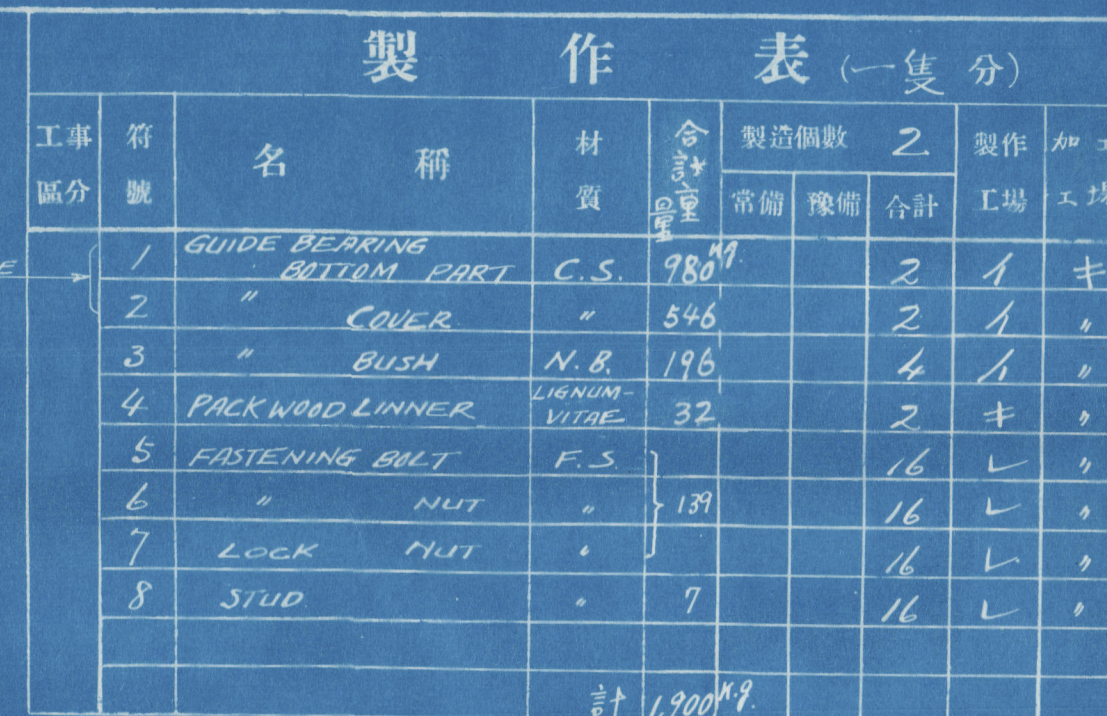 製作表(一隻分)
工事區分 符號 名稱 材質 合計重量 製造個數 2 製作工場 加工工場
常備 豫備 合計
1 GUIDE BEARING BOTTOM PART C.S. 980 Kg. 2 イ キ
2 〃 COVER 〃 546 2 イ 〃
3 〃 BUSH N.B. 196 4 イ 〃
4 PACKWOOD LINNER LIGNUM-VITAE 32 2 キ 〃
5 FASTENING BOLT F.S. 16 レ 〃
6 〃 NUT 〃 139 16 レ 〃
7 LOCK NUT 〃 16 レ 〃
8 STUD 〃 7 16 レ 〃
計 1,900 K.g.